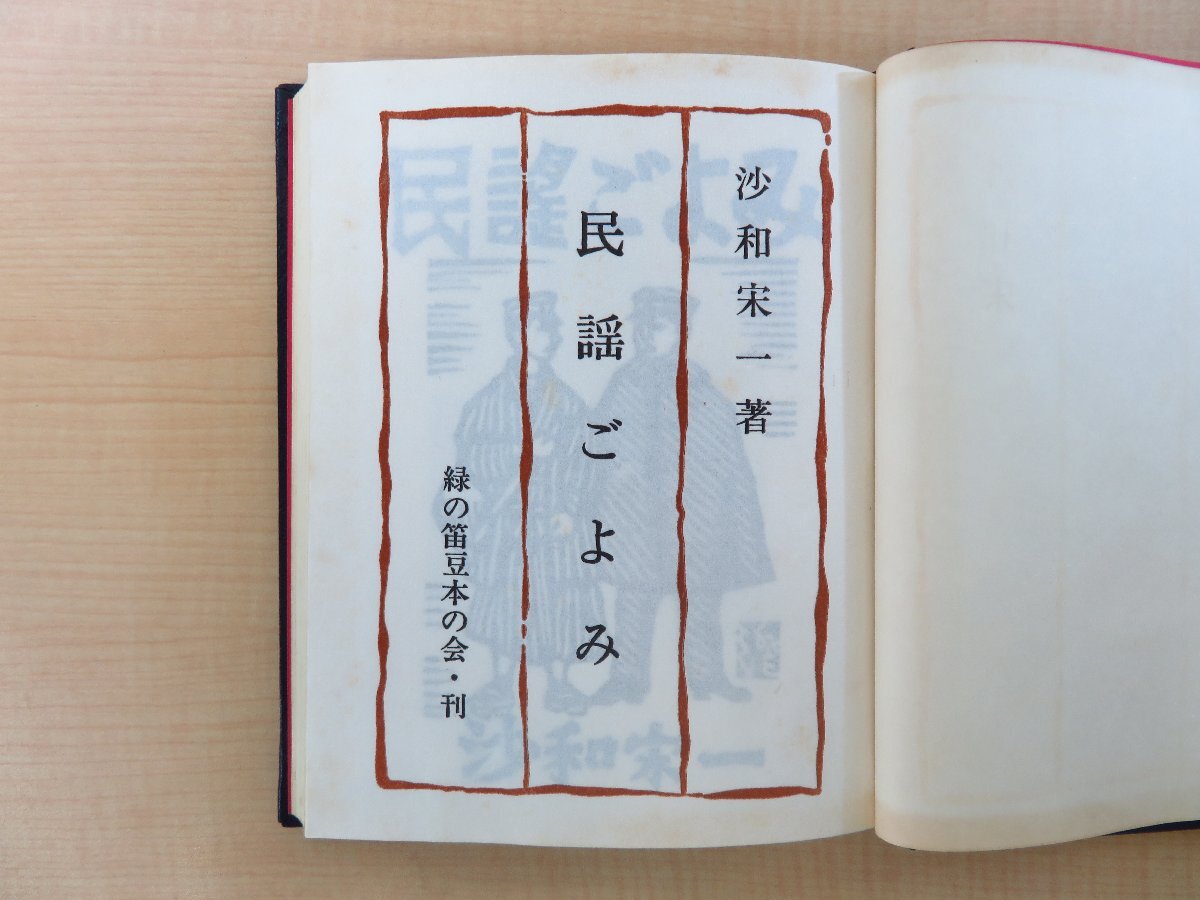 沙和宋一著
民謡ごよみ
緑の笛豆本の会・刊
民謡ごよみ
沙和宋一